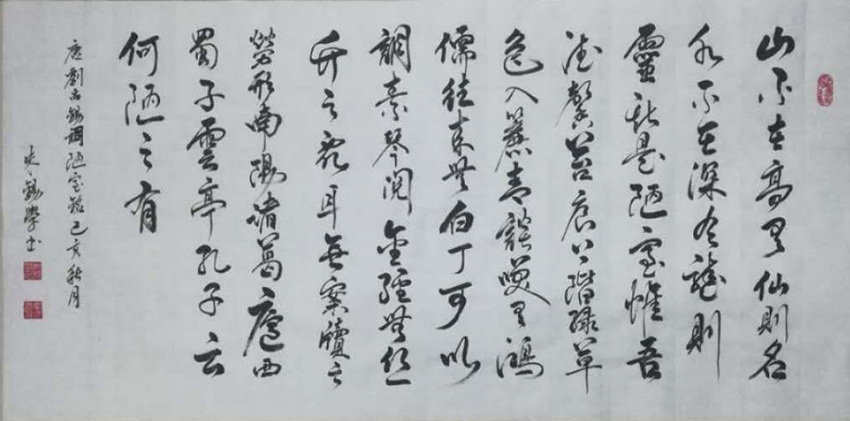 山不在高有仙則名
水不在深有龍則
靈斯是陋室惟吾
德馨苔痕上階綠草
色入簾青談笑有鴻
儒往來無白丁可以
調素琴閱金經無絲
竹之亂耳無案牘之
勞形南陽諸葛廬西
蜀子雲亭孔子云
何陋之有
唐劉禹錫詞陋室銘己亥秋月
錫學書